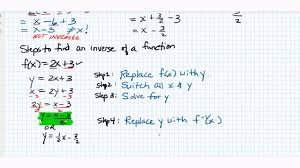 = x - 6 + 3
= x - 3 ≠ x!
NOT INVERSES
= x + 3/2 - 3
= x - 3/2
2
Steps to find an inverse of a function
f(x) = 2x + 3
y = 2x + 3
x = 2y + 3
-3 -3
2y = x - 3
2 2
y = x - 3 / 2
OR
y = 1/2 x - 3/2
Step 1: Replace f(x) with y
Step 2: Switch all x & y
Step 3: Solve for y
Step 4: Replace y with f⁻¹(x)